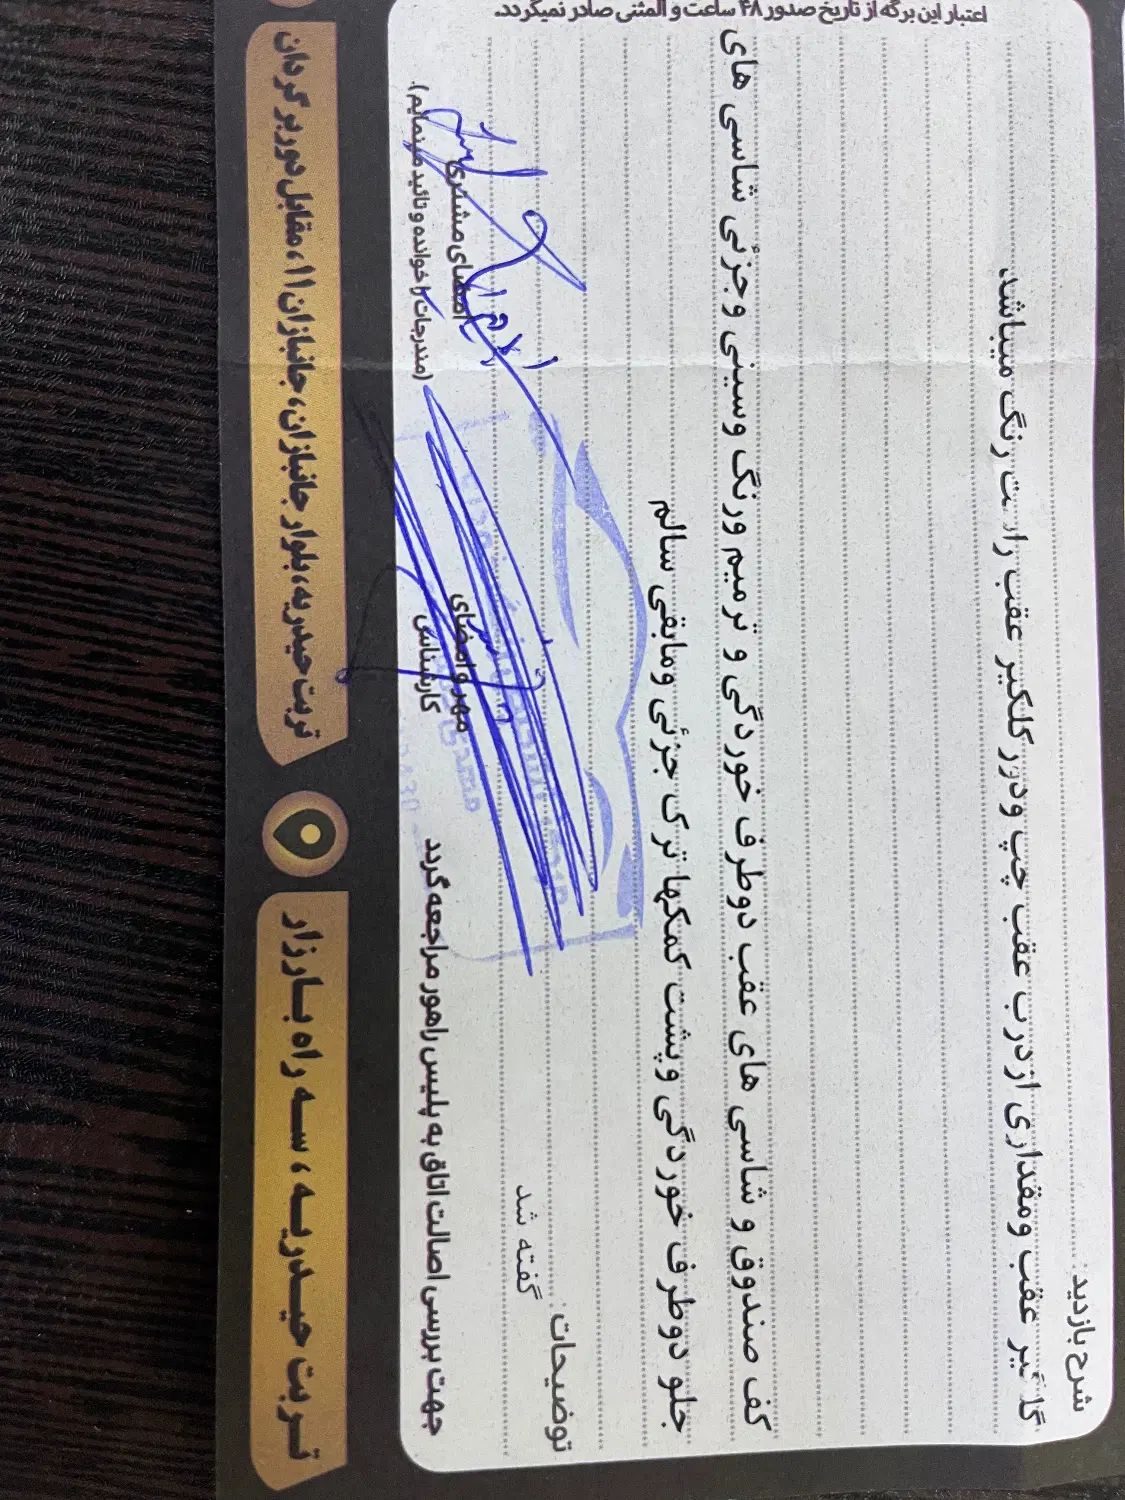 اعتبار این برگه از تاریخ صدور ۴۸ ساعت و المثنی صادر نمیگردد.
شرح بازدید:
گلگیر عقب ومقداری ازدرب عقب چپ ودور گلگیر عقب راست رنگ میباشد
کف صندوق و شاسی های عقب دوطرف خوردگی و ترمیم ورنگ وسینی وجزئی شاسی های
جلو دوطرف خوردگی وپشت کمکها ترک جزئی ومابقی سالم
توضیحات:
گفته شد
امضای مشتری
(مندرجات را خوانده و تائید مینمایم).
مهر و امضای
کارشناس
جهت بررسی اصالت اتاق به پلیس راهور مراجعه گردد
تربت حیدریه، سه راه بارزار
تربت حیدریه، بلوار جانبازان، جانبازان ۱۱، مقابل دوربرگردان